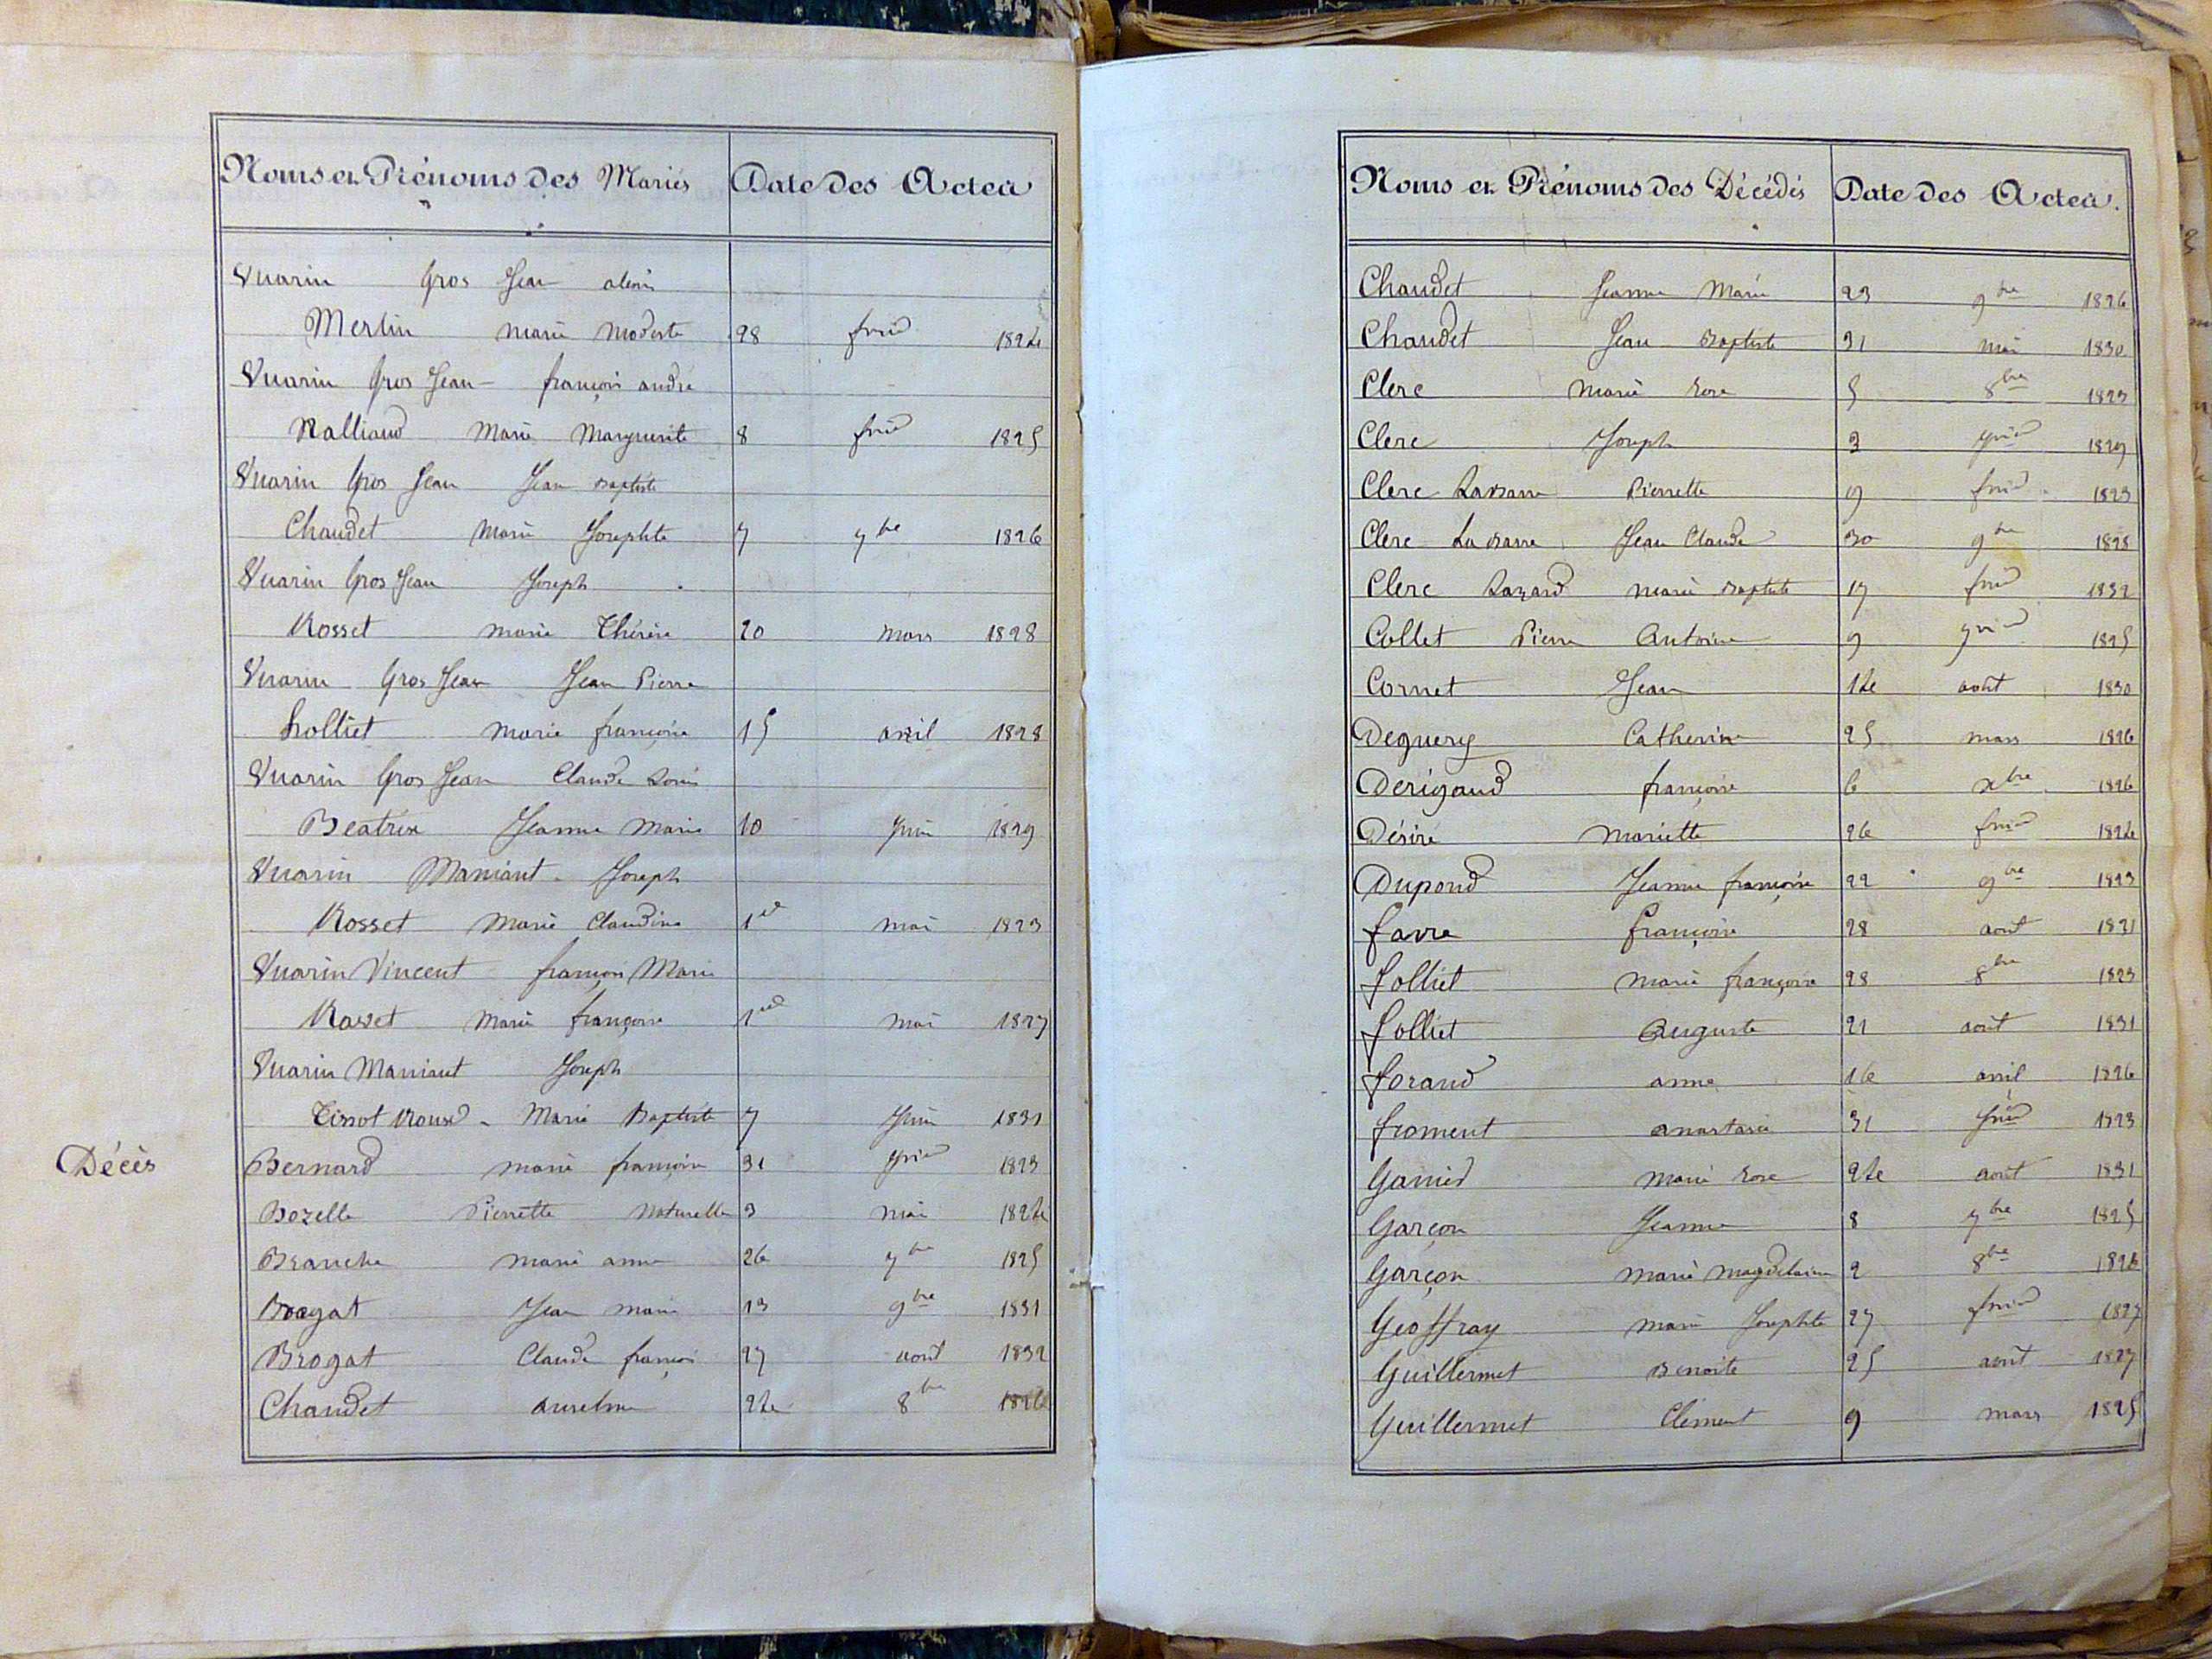 Noms et Prénoms des Mariés Date des Actes
Vuarin Gros Jean alexis
Merlin marie modeste 28 fried 1824
Vuarin Gros Jean françois andré
Nalliaud Marie Marguerite 8 fried 1825
Vuarin Gros Jean Jean Baptiste
Chaudet Marie Josephte 7 7bre 1826
Vuarin Gros Jean Joseph
Rosset marie Thérèse 20 mars 1828
Vuarin Gros Jean Jean Pierre
folliet marie françoise 15 avril 1828
Vuarin Gros Jean Claude Louis
Beatrix Jeanne Marie 10 juin 1829
Vuarin Maniant Joseph
Rosset Marie Claudine 1er mai 1823
Vuarin Vincent françois Marie
Rosset Marie françoise 1er mai 1827
Vuarin Maniant Joseph
Tissot Roux Marie Baptiste 7 Juin 1831
Décès
Bernard marie françoise 31 1823
Bozelle Pierrette naturelle 3 mai 1824
Branche marie anne 26 7bre 1825
Brogat Jean marie 13 9bre 1831
Brogat Claude françois 27 août 1832
Chaudet anselme 24 8bre 1826
Noms et Prénoms des Décédés Date des Actes.
Chaudet Jeanne Marie 23 9bre 1826
Chaudet Jean Baptiste 31 mai 1830
Clerc Marie rose 5 8bre 1823
Clerc Joseph 3 1829
Clerc Pierrette 9 1823
Clerc Jean Claude 30 9bre 1828
Clerc Lazard marie Baptiste 17 1832
Collet Pierre Antoine 9 1825
Cornet Jean 14 août 1830
Deguery Catherine 25 mars 1826
Derigaud françoise 6 xbre 1826
Désiré Mariette 26 1824
Dupond Jeanne françoise 22 9bre 1823
favre françoise 28 août 1821
folliet marie françoise 28 8bre 1823
folliet Auguste 21 août 1831
forand anne 16 avril 1826
froment anastasie 31 1823
Garnier Marie rose 24 août 1831
Garçon Jeanne 8 7bre 1825
Garçon marie magdelaine 2 8bre 1826
Geoffray marie Josephte 27 1827
Guillermet Benoite 25 août 1827
Guillermet Clément 9 mars 1825